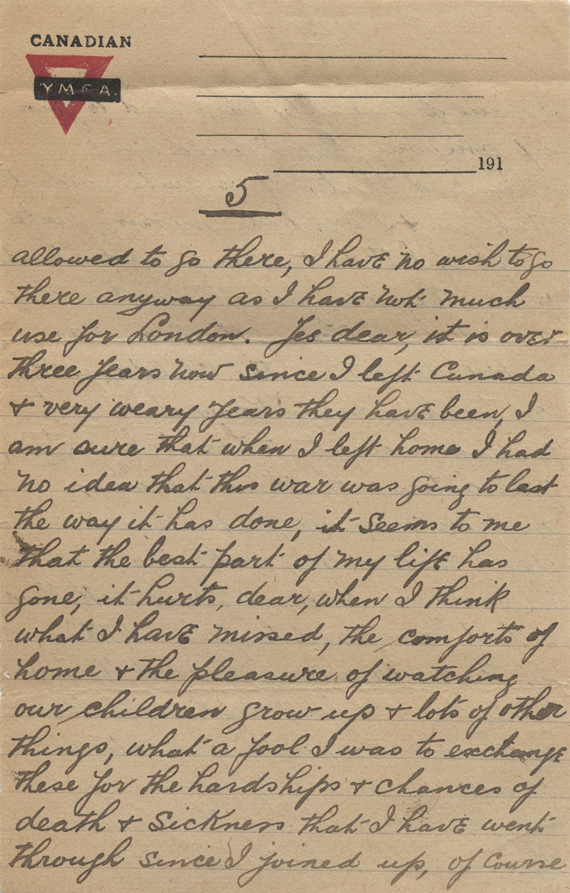 CANADIAN
YMCA.
191
5
allowed to go there, I have no wish to go
there anyway as I have not much
use for London. Yes dear, it is over
three years now since I left Canada
& very weary years they have been, I
am sure that when I left home I had
no idea that this war was going to last
the way it has done, it seems to me
that the best part of my life has
gone, it hurts, dear, when I think
what I have missed, the comforts of
home & the pleasure of watching
our children grow up & lots of other
things, what a fool I was to exchange
these for the hardships & chances of
death & sickness that I have went
through since I joined up, of course